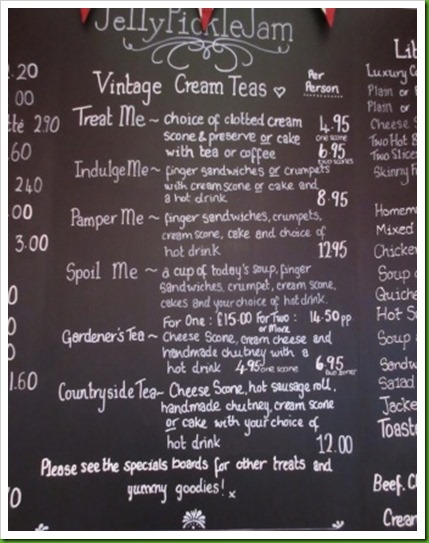 JellyPickleJam
Vintage Cream Teas
Per
Person
Treat Me ~ choice of clotted cream 4.95
scone & preserve or cake one scone
with tea or coffee 6.95
two scones
Indulge Me ~ finger sandwiches or crumpets
with cream scone or cake and
a hot drink 8.95
Pamper Me ~ finger sandwiches, crumpets,
cream scone, cake and choice of
hot drink 12.95
Spoil Me ~ a cup of today's soup, finger
sandwiches, crumpet, cream scone,
cakes and your choice of hot drink.
For One: £15.00 For Two: 14.50 pp
or More
Gardener's Tea ~ Cheese Scone, cream cheese and
handmade chutney with a
hot drink 4.95 one scone 6.95
two scones
Countryside Tea ~ Cheese Scone, hot sausage roll,
handmade chutney, cream scone
or cake with your choice of
hot drink 12.00
Please see the specials boards for other treats and
yummy goodies! x
.20
00
2.90
.60
240
.00
3.00
0
0
1.60
0
Luxury
Plain or
Plain or
Cheese
Two Hot
Two Slices
Skinny
Mixed
Chicken
Soup
Quiche
Hot
Soup
Salad
Beef.
Cream